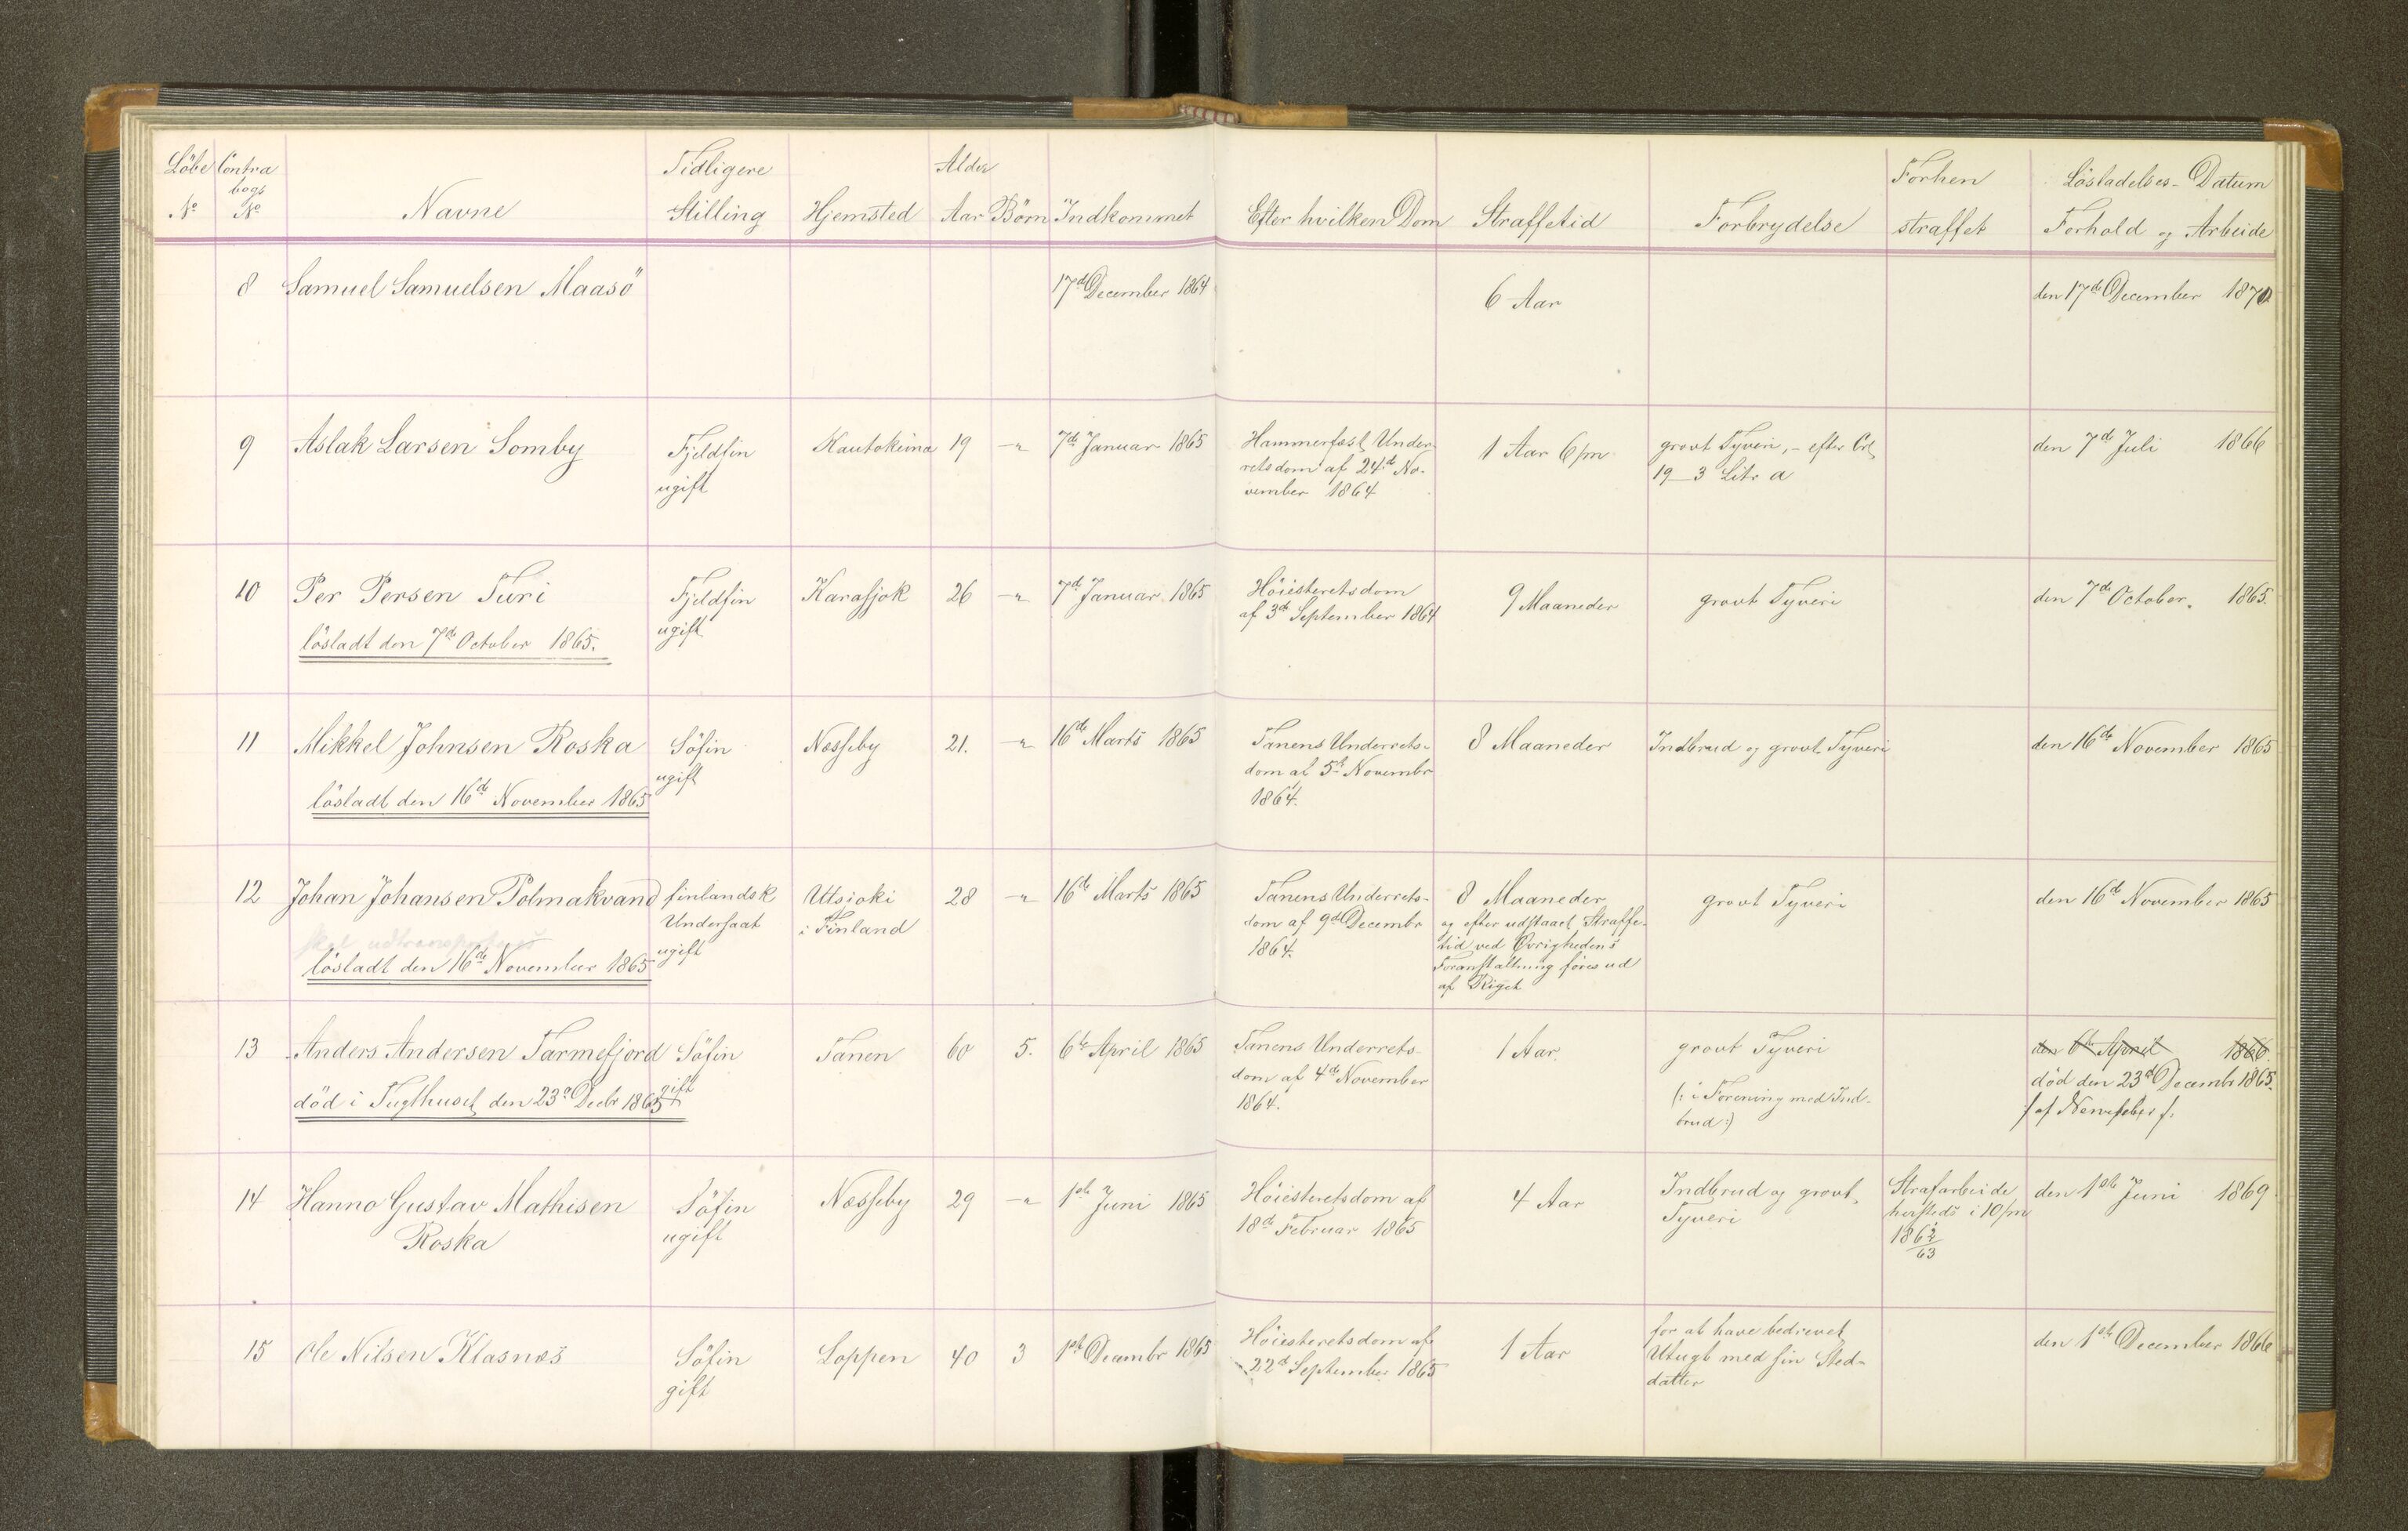 Löbe Contra Tidligere Alder Forhen Lösladelses-Datum
bogs
No No Navne Stilling Hjemsted Aar Börn Indkommet Efter hvilken Dom Straffetid Forbrydelse straffet Forhold og Arbeide
8 Samuel Samuelsen Maasö 17de December 1864 6 Aar den 17de December 1870
9 Aslak Larsen Somby Fjeldfin Kautokeino 19 -"- 7de Januar 1865 Hammerfest Under- 1 Aar 6/m grovt Tyveri, - efter Crl den 7de Juli 1866
ugift retsdom af 24de No- 19–3 Litr a
vember 1864
10 Per Persen Turi Fjeldfin Karasjok 26 -"- 7de Januar 1865 Höiesteretsdom 9 Maaneder grovt Tyveri den 7de October. 1865.
lösladt den 7de October 1865. ugift af 3de September 1864
11 Mikkel Johnsen Roska Söfin Nesseby 21. -"- 16de Marts 1865 Tanens Underrets- 8 Maaneder Indbrud og grovt Tyveri den 16de November 1865
lösladt den 16de November 1865 ugift dom af 5te Novembr
1864.
12 Johan Johansen Polmakvand finlandsk Utsjoki 28 -"- 16de Marts 1865 Tanens Underrets- 8 Maaneder grovt Tyveri den 16de November 1865
skal udtransporteres Undersaat i Finland dom af 9de Decembr og efter udstaaet Straffe-
lösladt den 16de November 1865 ugift 1864. tid ved Övrighedens
Foranstaltning föres ud
af Riget
13 Anders Andersen Tarmefjord Söfin Tanen 60 5. 6te April 1865 Tanens Underrets- 1 Aar. grovt Tyveri den 6te April 1866.
död i Tugthuset den 23de Decbr 1865 gift dom af 4de November (: i Forening med Ind- död den 23de Decembr 1865.
1864. brud :) / af Nervefeber /.
14 Hanno Gustav Mathisen Söfin Nesseby 29 -"- 1ste Juni 1865 Höiesteretsdom af 4 Aar Indbrud og grovt Strafarbeide den 1ste Juni 1869
Roska ugift 18de Februar 1865 Tyveri hersteds i 10/m
1862/63
15 Ole Nilsen Klasnæs Söfin Loppen 40 3 1ste Decembr 1865 Höiesteretsdom af 1 Aar for at have bedrevet den 1ste December 1866
gift 22de September 1865 Utugt med sin Sted-
datter